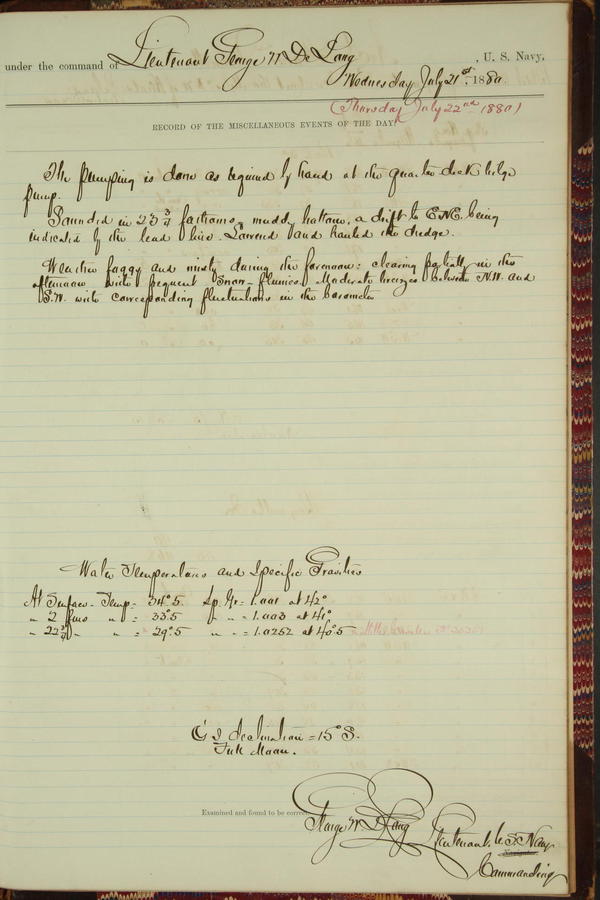 under the command of Lieutenant George W. De Long, U. S. Navy,
Wednesday July 21st, 1880
(Thursday July 22nd 1880)
RECORD OF THE MISCELLANEOUS EVENTS OF THE DAY.
The pumping is done as required by hand at the quarter deck bilge
pump.
Sounded in 23 3/4 fathoms, muddy bottom, a drift to E.N.E. being
indicated by the lead line. Lowered and hauled the dredge.
Weather foggy and misty during the forenoon: clearing partially in the
afternoon with frequent snow-flurries. Moderate breezes between N.W. and
S.W. with corresponding fluctuations in the barometer
Water Temperatures and Specific Gravities
At Surface - Temp = 34°.5 Sp. Gr = 1.001 at 42°
" 2 fms " = 33°.5 " " = 1.003 at 41°
" 22 3/4 " " = 29°.5 " " = 1.0252 at 40°.5
declination = 15° S.
Full Moon.
Examined and found to be correct.
George W. De Long Lieutenant U.S. Navy
Commanding